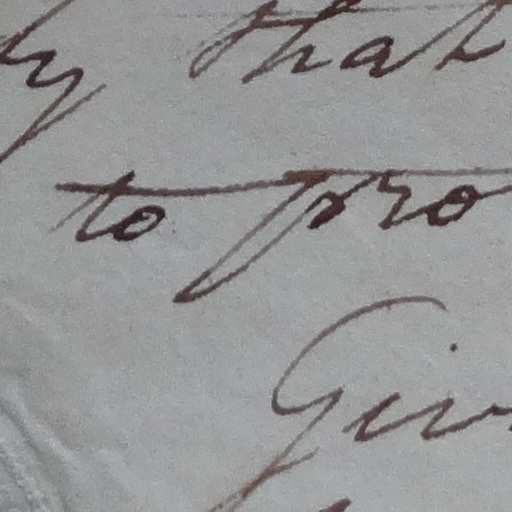 y that
to pro
Giv